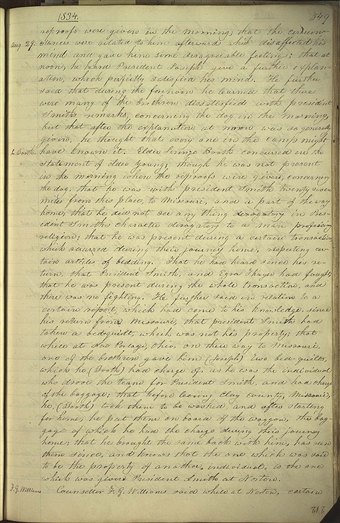 1834.
349
reproofs were given in the morning, that the circum-
Aug 29. stances were related to him afterwards which dissatisfied his
mind and gave him some disagreeable feelings; that at
noon, he heard President Smith give a further explan-
ation, which perfectly satisfied his mind. He further
said that during the forenoon he learned that there
were many of the brethren dissatisfied with president
Smith's remarks, concerning the dog in the morning,
but that after the explanation at noon was so generally
given, he thought that every one in the camp might
L. Booth. have known it. Elder Lorenzo Booth concurred in the
statement of Elder Young, though he was not present
in the morning when the reproofs were given, concerning
the dog, that he was with president Smith twenty seven
miles from this place, to Missouri, and a part of the way
home, that he did not see any thing derogatory in Pres-
ident Smith's character derogatory to a man professing
religion; that he was present during a certain transaction
which occurred during their journey home, respecting cer-
tain articles of bedding. That he had heard since his re-
turn, that President Smith, and Ezra Thayer had fought
that he was present during the whole transaction, and
there was no fighting. He further said in relation to a
certain report, which had come to his knowledge since
his return from Missouri, that president Smith had
taken a bedquilt which was not his property; that
while at New Portage, Ohio, on their way to Missouri,
one of the brethren gave him (Joseph) two bed-quilts,
which he, (Booth) had charge of; as he was the individual
who drove the team for President Smith, and had charge
of the baggage; that before leaving Clay county, Missouri,
he, (Booth) took them to be washed, and after starting
for home, he put them on board of the waggon, the bag-
gage of which he had the charge during their journey
home; that he brought the same back with him, has seen
them since, and knows that the one which was said
to be the property of another individual, is the one
which was given President Smith at Norton.
F. G. Williams Counsellor F. G. Williams said while at Norton, certain